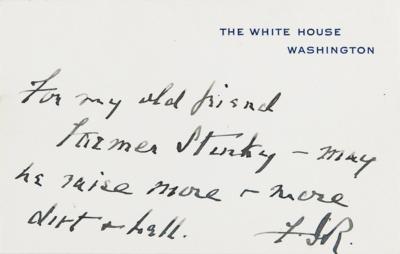 THE WHITE HOUSE
WASHINGTON
For my old friend
Farmer Stinky – may
he raise more + more
dirt + hell. FDR.